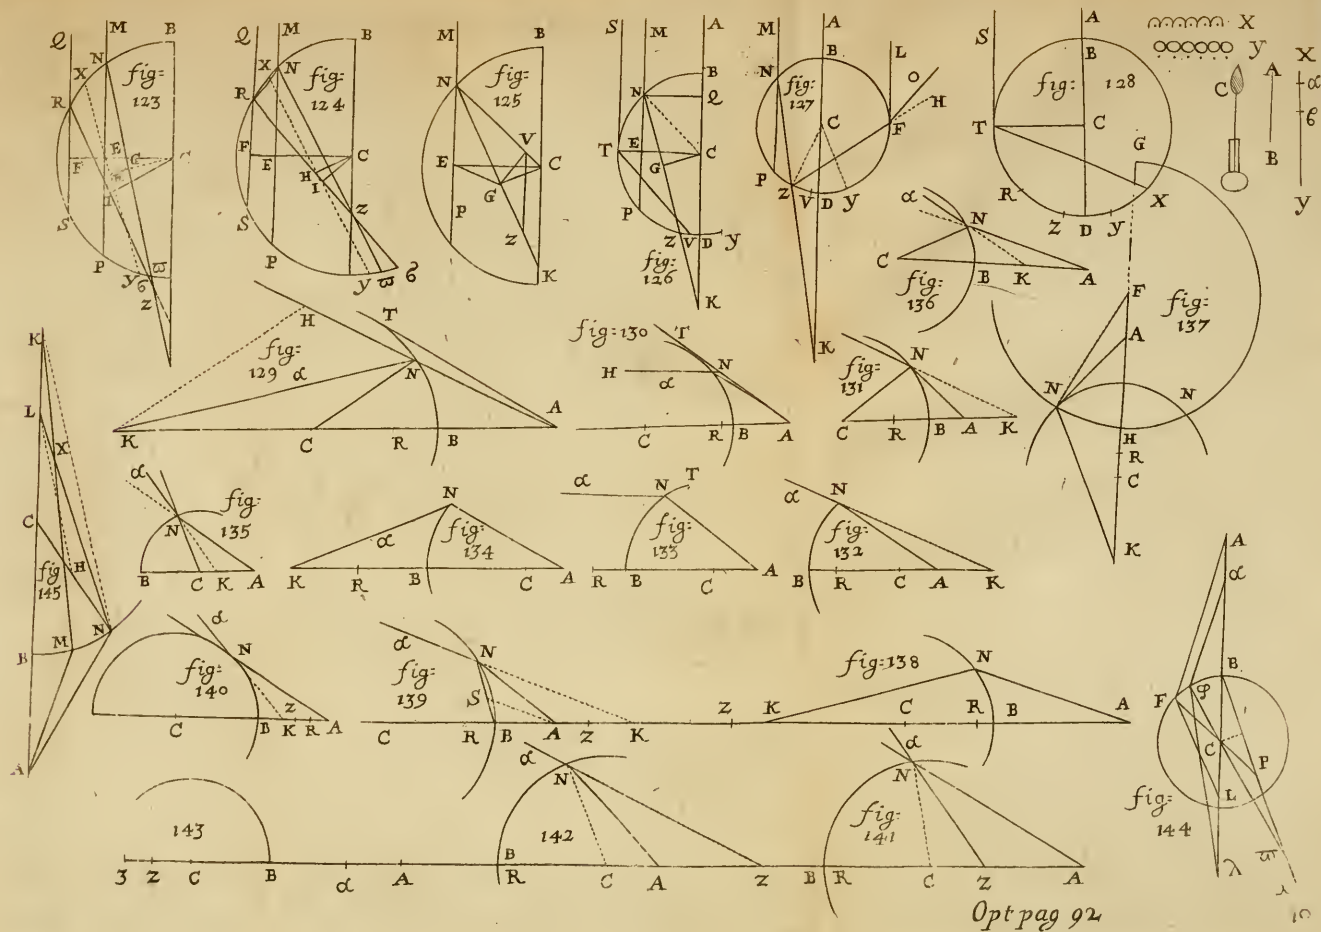 Q M B
X N
R
fig:
123
F E G C
H
S
P
y 6 ϖ
z
Q M B
X N
R
fig:
124
F E C
H I
z
S
P
y ϖ 6
M B
N
fig:
125
V
E C
G
P
z
K
S M A
B
N Q
T E C
G
P
z V D y
fig:
126
K
M A
B L
N O
fig:
127
H
C F
P
z V D y
K
S A
B
fig: 128
T C
G
R X
z D y
X
y X
C A α
6
B
y
α N
C
B K A
fig:
136
F
fig:
137
A
N N
H
R
C
K
H T
fig:
129
α N
A
K C R B
fig: 130 T
H N
α
C R B A
N
fig:
131
C R B A K
K
L
X
C
fig
145
H
M N
B
A
α
fig:
135
N
B C K A
N
fig:
134
α
K R B C A
α N T
fig:
133
R B C A
α N
fig:
132
B R C A K
α
N
fig:
140
z
C B K R A
α N
fig:
139
S
C R B A z K
fig: 138 N
z K C R B A
A
α
B
F φ
C P
L
fig:
144
ϖ
λ
143
3 z C B α A
α
N
142
B
R C A z
α
N
fig:
141
B R C z A
Opt pag 92